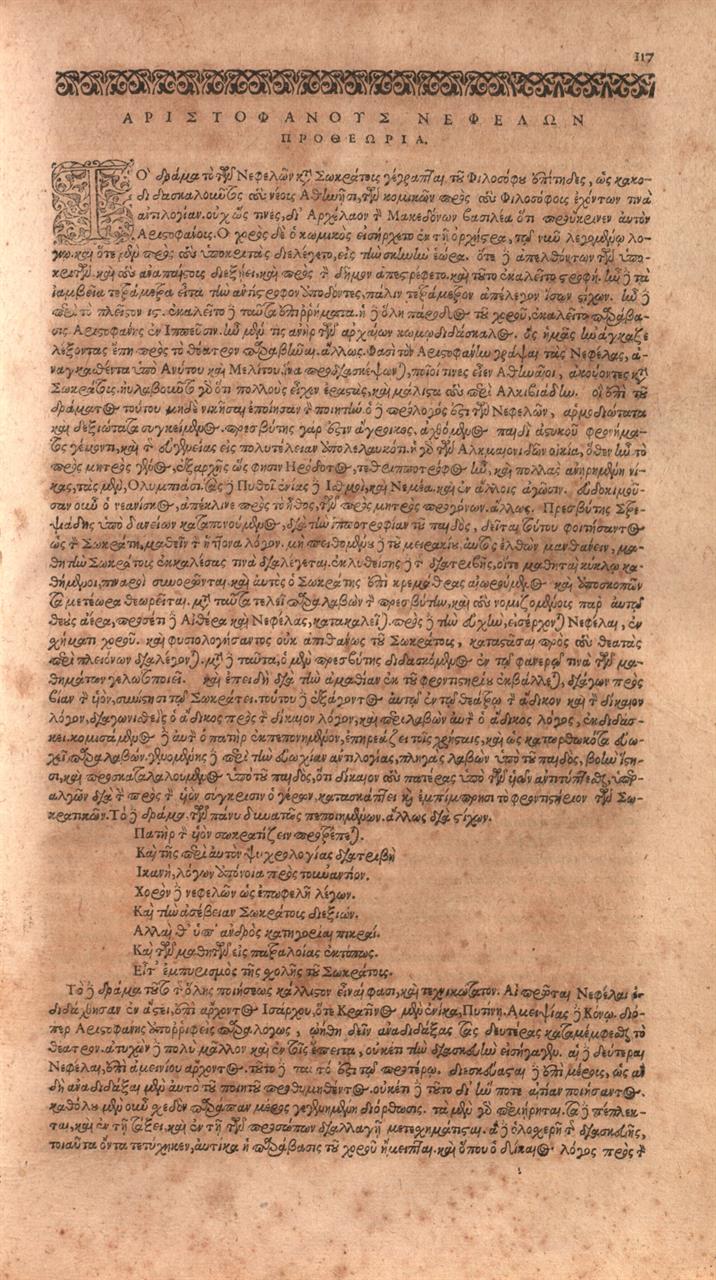 117
ΑΡΙΣΤΟΦΑΝΟΥΣ ΝΕΦΕΛΩΝ
ΠΡΟΘΕΩΡΙΑ.
ΤΟ δρᾶμα τὸ τῶν Νεφελῶν κατὰ Σωκράτους γέγραπται τοῦ Φιλοσόφου ἐπίτηδες, ὡς κακο-
διδασκαλοῦντος τοὺς νέους Ἀθήνησι, τῶν κωμικῶν πρὸς τοὺς Φιλοσόφους ἐχόντων τινὰ
ἀντιλογίαν. οὐχ ὥς τινες, δι' Ἀρχέλαον τὸν Μακεδόνων βασιλέα ὅτι προὔκρινεν αὐτὸν
Ἀριστοφάνους. Ὁ χορὸς δὲ ὁ κωμικὸς εἰσήρχετο ἐν τῇ ὀρχήστρᾳ, τῷ νῦν λεγομένῳ λο-
γίῳ. καὶ ὅτε μὲν πρὸς τοὺς ὑποκριτὰς διελέγετο, εἰς τὴν σκηνὴν ἑώρα. ὅτε δὲ ἀπελθόντων τῶν ὑπο-
κριτῶν. καὶ τοὺς ἀναπαίστους διεξῄει. καὶ πρὸς τὸν δῆμον ἀπεστρέφετο. καὶ τοῦτο ἐκαλεῖτο στροφή. ἦν δὲ τὰ
ἰαμβεῖα τετράμετρα εἶτα τὴν ἀντίστροφον ἀποδόντες, πάλιν τετράμετρον ἀπέλεγον ἴσων στίχων. ἦν δὲ
ἐπὶ τὸ πλεῖστον ις. ἐκαλεῖτο δὲ ταῦτα ἐπιρρήματα. ἡ δὲ ὅλη πάροδος τοῦ χοροῦ, ἐκαλεῖτο παράβα-
σις Ἀριστοφάνης ἐν Ἱππεῦσιν. ἦν μὲν τις ἀνὴρ τῶν ἀρχαίων κωμῳδιδάσκαλος. ὃς ἡμᾶς ἠνάγκαζε
λέξοντας ἔπη πρὸς τὸ θέατρον παραβῆναι. ἄλλως. Φασὶ τὸν Ἀριστοφάνην γράψαι τὰς Νεφέλας, ἀ-
ναγκασθέντα ὑπὸ Ἀνύτου καὶ Μελίτου, ἵνα προδιασκέψωνται, ποῖοί τινες εἶεν Ἀθηναῖοι, ἀκούοντες κατὰ
Σωκράτους. ηὐλαβοῦντο γὰρ ὅτι πολλοὺς εἶχεν ἐραστὰς, καὶ μάλιστα τοὺς περὶ Ἀλκιβιάδην. οἳ ἐπὶ τοῦ
δράματος τούτου μηδὲ νικῆσαι ἐποίησαν τὸν ποιητήν. ὁ δὲ πρόλογός ἐστι τῶν Νεφελῶν, ἁρμοδιώτατα
καὶ δεξιώτατα συγκείμενος. πρεσβύτης γάρ ἐστιν ἄγροικος. ἀχθόμενος παιδὶ ἀστικοῦ φρονήμα-
τος γέμοντι, καὶ τῆς εὐγενείας εἰς πολυτέλειαν ἀπολελαυκότι. ἡ γὰρ τῶν Ἀλκμαιονιδῶν οἰκία, ὅθεν ἦν τὸ
πρὸς μητρὸς γένος, ἐξαρχῆς ὥς φησιν Ἡρόδοτος, τεθριπποτρόφος ἦν, καὶ πολλὰς ἀνῃρημένη νί-
κας, τὰς μὲν, Ὀλυμπιάσι. τὰς δὲ Πυθοῖ ἐνίας δὲ Ἰσθμοῖ, καὶ Νεμέα. καὶ ἐν ἄλλοις ἀγῶσιν. εὐδοκιμοῦ-
σαν οὖν ὁ νεανίσκος, ἀπέκλινε πρὸς τὸ ἦθος, τῶν πρὸς μητρὸς προγόνων. ἄλλως. Πρεσβύτης Στρε-
ψιάδης ὑπὸ δανείων καταπονούμενος, διὰ τὴν ἱπποτροφίαν τοῦ παιδὸς, δεῖται τούτου φοιτήσαντος
ὡς τὸν Σωκράτη, μαθεῖν τὸν ἥττονα λόγον. μὴ πειθομένου δὲ τοῦ μειρακίου, αὐτὸς ἐλθὼν μανθάνειν, μα-
θητὴν Σωκράτους ἐκκαλέσας τινὰ διαλέγεται. ἐκλυθείσης δὲ τῆς διατριβῆς, οἵ τε μαθηταὶ κύκλῳ κα-
θήμενοι, πιναροὶ συνορῶνται. καὶ αὐτὸς ὁ Σωκράτης ἐπὶ κρεμάθρας αἰωρούμενος καὶ ἀποσκοπῶν
τὰ μετέωρα θεωρεῖται. μετὰ ταῦτα τελεῖ παραλαβὼν τὸν πρεσβύτην, καὶ τοὺς νομιζομένους παρ' αὐτῷ
θεοὺς ἀέρα, προσέτι δὲ Αἰθέρα καὶ Νεφέλας, κατακαλεῖται. πρὸς δὲ τὴν εὐχὴν, εἰσέρχονται Νεφέλαι, ἐν
σχήματι χοροῦ. καὶ φυσιολογήσαντος οὐκ ἀπιθάνως τοῦ Σωκράτους, καταστᾶσαι πρὸς τοὺς θεατὰς
περὶ πλειόνων διαλέγονται. μετὰ δὲ ταῦτα, ὁ μὲν πρεσβύτης διδασκόμενος ἐν τῷ φανερῷ τινὰ τῶν μα-
θημάτων γελωτοποιεῖ. καὶ ἐπειδὴ διὰ τὴν ἀμαθίαν ἐκ τοῦ φροντιστηρίου ἐκβάλλεται, διάγων πρὸς
βίαν τὸν υἱὸν, συνίστησι τῷ Σωκράτει. τούτου δὲ ἐξάγοντος αὐτῷ ἐν τῷ θεάτρῳ τὸν ἄδικον καὶ τὸν δίκαιον
λόγον, διαγωνισθεὶς ὁ ἄδικος πρὸς τὸν δίκαιον λόγον, καὶ παραλαβὼν αὐτὸν ὁ ἄδικος λόγος, ἐκδιδάσ-
κει. κομισάμενος δὲ αὐτὸν ὁ πατὴρ ἐκπεπονημένον, ἐπηρεάζει τοῖς χρήσταις, καὶ ὡς κατωρθωκότα εὐω-
χεῖ παραλαβών. γενομένης δὲ περὶ τὴν εὐωχίαν ἀντιλογίας, πληγὰς λαβὼν ὑπὸ τοῦ παιδὸς, βοὴν ἵστη-
σι, καὶ προσκαταλαλούμενος ὑπὸ τοῦ παιδὸς, ὅτι δίκαιον τοὺς πατέρας ὑπὸ τῶν υἱῶν ἀντιτύπτεσθαι, ὑπερ-
αλγῶν διὰ τὴν πρὸς τὸν υἱὸν σύγκρισιν ὁ γέρων, κατασκάπτει καὶ ἐμπίμπρησι τὸ φροντιστήριον τῶν Σω-
κρατικῶν. Τὸ δὲ δρᾶμα. τῶν πάνυ δυνατῶς πεποιημένων. ἄλλως διὰ στίχων.
Πατὴρ τὸν υἱὸν σωκρατίζειν προτρέπεται.
Καὶ τῆς περὶ αὐτὸν ψυχρολογίας διατριβὴ
Ἱκανὴ, λόγων ἀπόνοια πρὸς τοὐναντίον.
Χορὸν δὲ νεφελῶν ὡς ἐπωφελῆ λέγων.
Καὶ τὴν ἀσέβειαν Σωκράτους διεξιών.
Ἄλλαι θ' ὑπ' ἀνδρὸς κατηγορίαι πικραί.
Καὶ τῶν μαθητῶν εἷς πατραλοίας ἐκτόπως.
Εἶτ' ἐμπυρισμὸς τῆς σχολῆς τοῦ Σωκράτους.
Τὸ δὲ δρᾶμα τοῦτο τῆς ὅλης ποιήσεως κάλλιστον εἶναί φασι, καὶ τεχνικώτατον. Αἱ πρῶται Νεφέλαι ἐ-
διδάχθησαν ἐν ἄστει, ἐπὶ ἄρχοντος Ἰσάρχου, ὅτε Κρατῖνος μὲν ἐνίκα, Πυτίνῃ. Ἀμειψίας δὲ Κόννῳ. διό-
περ Ἀριστοφάνης ἀπορριφεὶς παραλόγως, ᾠήθη δεῖν ἀναδιδάξας τὰς δευτέρας καταμέμφεσθαι τὸ
θέατρον. ἀτυχὼν δὲ πολὺ μᾶλλον καὶ ἐν τοῖς ἔπειτα, οὐκέτι τὴν διασκευὴν εἰσήγαγεν. αἱ δὲ δεύτεραι
Νεφέλαι, ἐπὶ ἀμεινίου ἄρχοντος. τοῦτο δὲ ταὐτό ἐστι τῷ προτέρῳ. διεσκεύασται δὲ ἐπὶ μέρους, ὡς ἂν
δὴ ἀναδιδάξαι μὲν αὐτὸ τοῦ ποιητοῦ προθυμηθέντος. οὐκέτι δὲ τοῦτο δι' ἥν ποτε αἰτίαν ποιήσαντος.
καθόλου μὲν οὖν σχεδὸν παρὰ πᾶν μέρος γεγενημένη διόρθωσις. τὰ μὲν γὰρ περιῄρηται. τὰ δὲ πέπλεκ-
ται, καὶ ἐν τῇ τάξει. καὶ ἐν τῇ τῶν προσώπων διαλλαγῇ μετεσχημάτισται. ἃ δὲ ὁλοσχερῆ τῆς διασκευῆς,
τοιαῦτα ὄντα τετύχηκεν, αὐτίκα ἡ παράβασις τοῦ χοροῦ ἤμειπται. καὶ ὅπου ὁ δίκαιος λόγος πρὸς τὸν